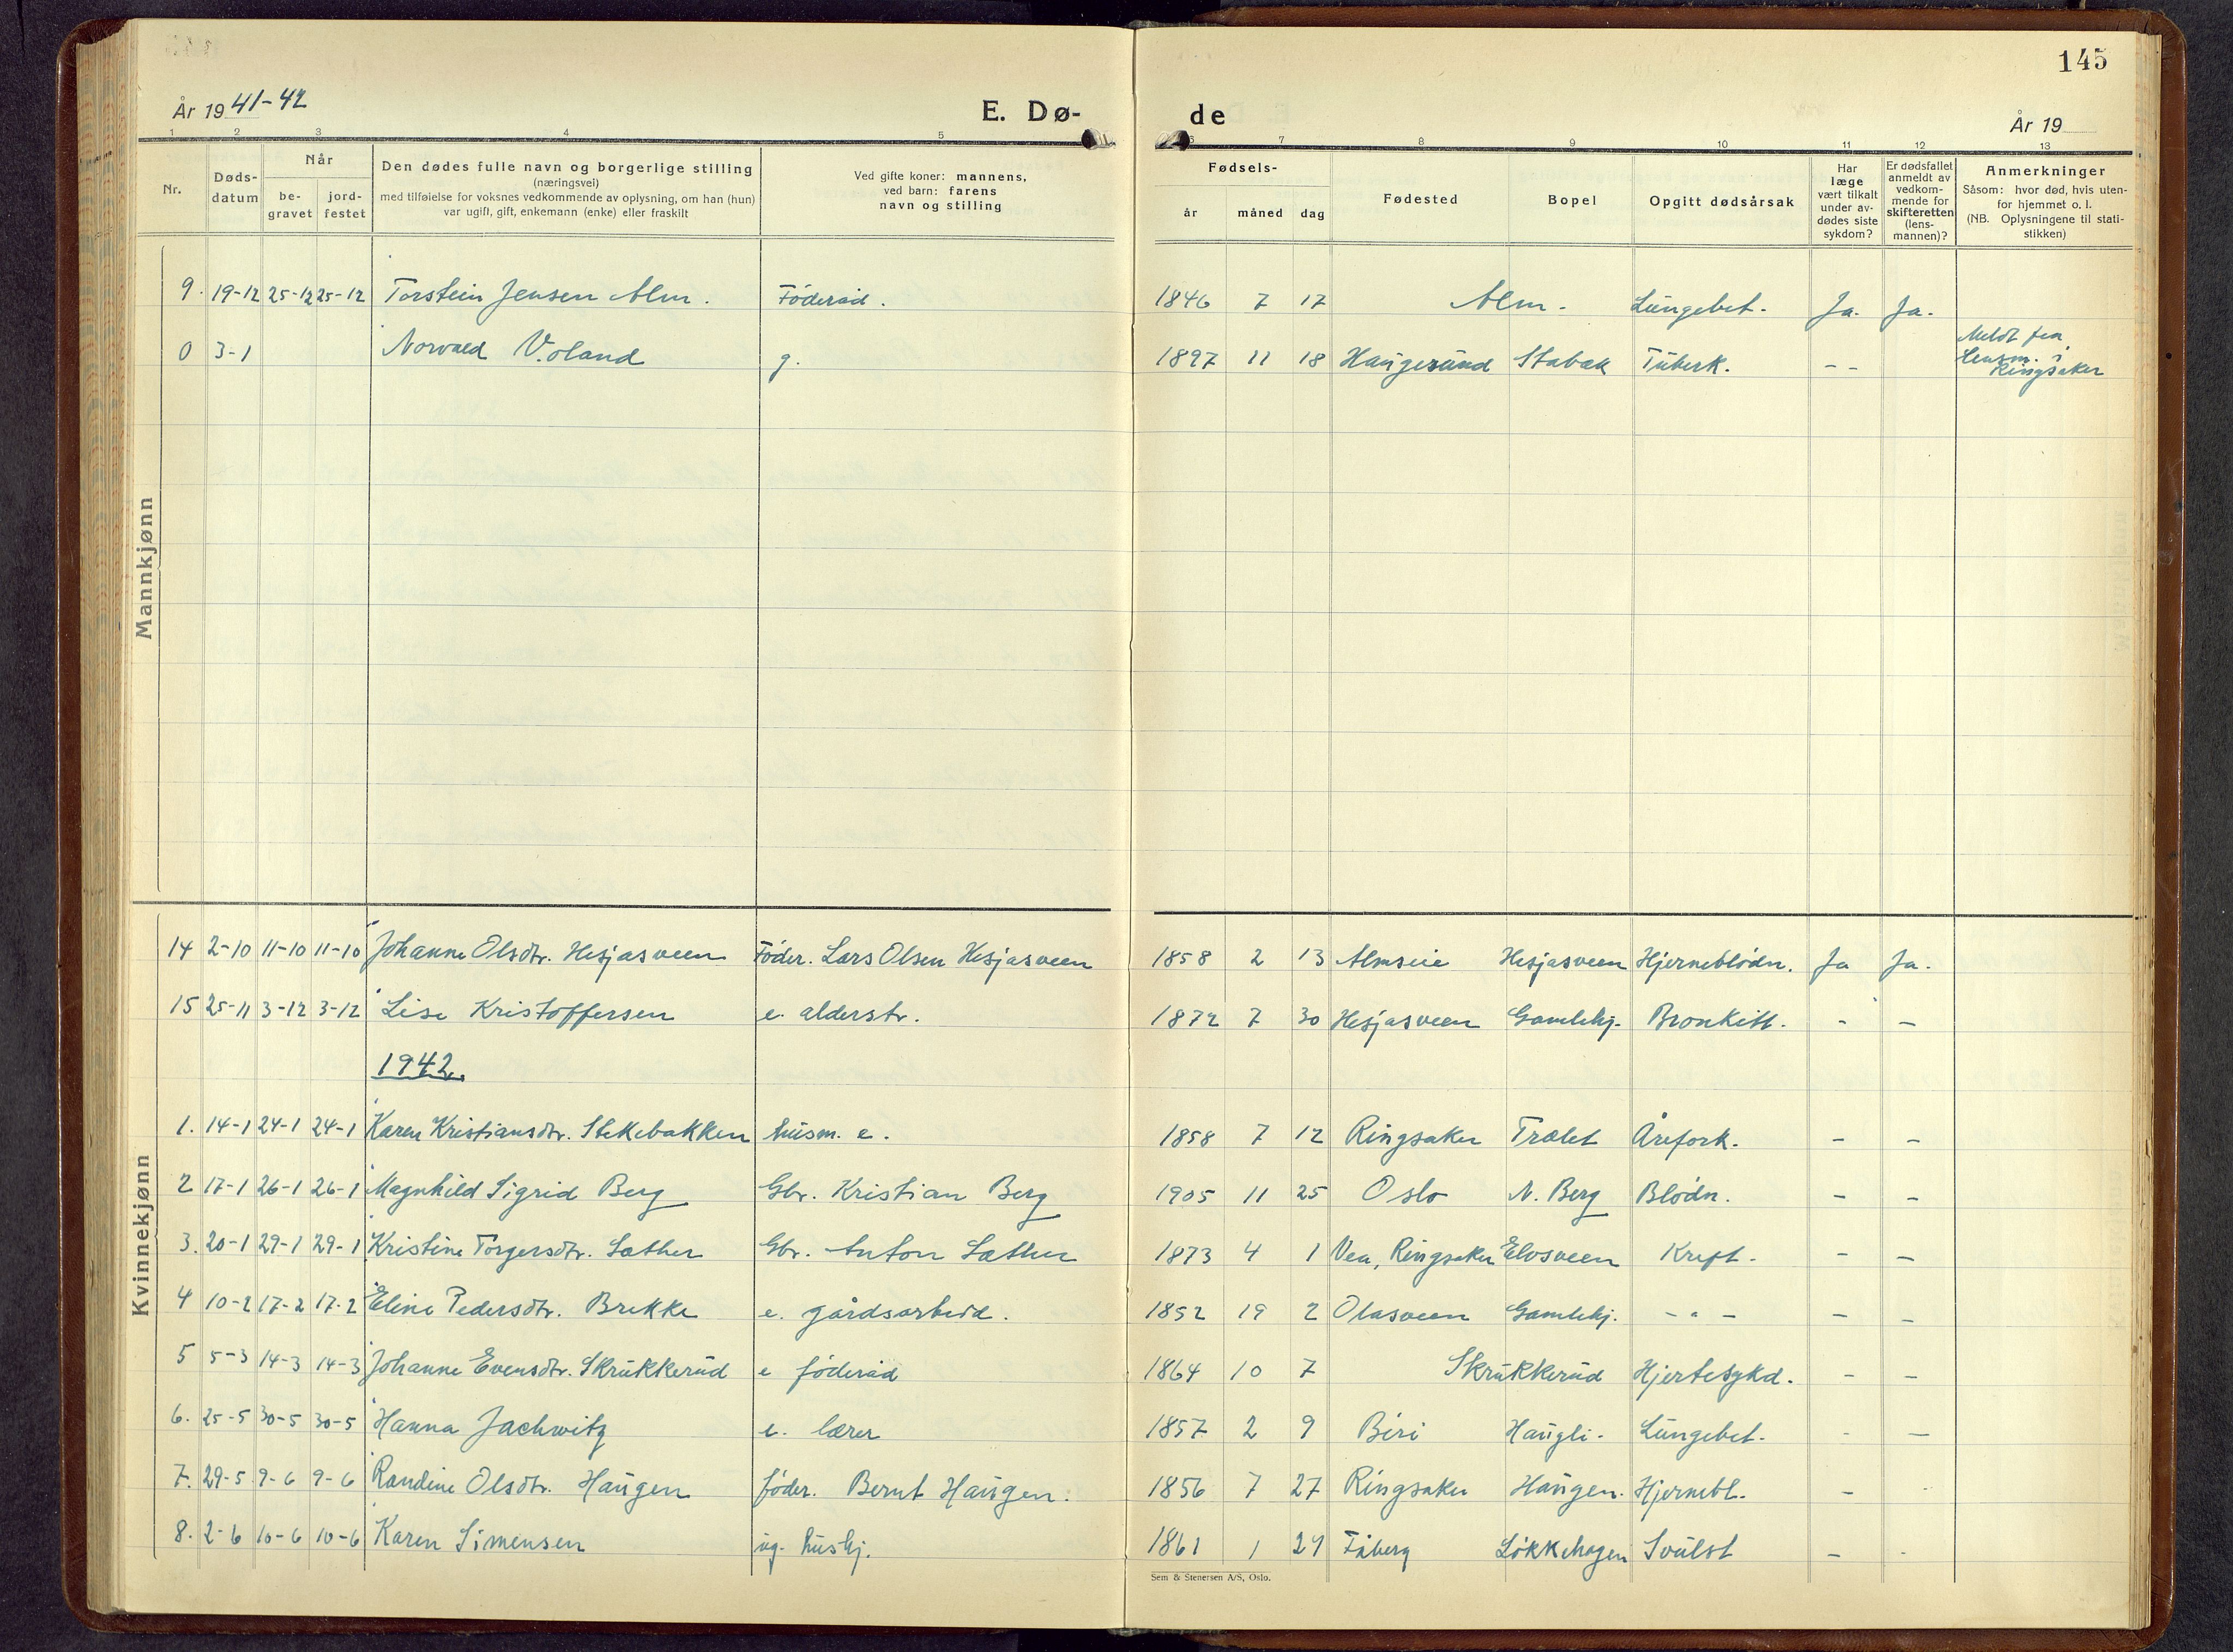 145
År 1941-42 E. Dø- de År 19
1 2 3 4 5 6 7 8 9 10 11 12 13
Nr. Døds-datum Når be-gravet jord-festet Den dødes fulle navn og borgerlige stilling (næringsvei) med tilføielse for voksnes vedkommende av oplysning, om han (hun) var ugift, gift, enkemann (enke) eller fraskilt Ved gifte koner: mannens, ved barn: farens navn og stilling Fødsels- år måned dag Fødested Bopel Opgitt dødsårsak Har læge vært tilkalt under av-dødes siste sykdom? Er dødsfallet anmeldt av vedkom-mende for skifteretten (lens-mannen)? Anmerkninger Såsom: hvor død, hvis uten-for hjemmet o. l. (NB. Oplysningene til stati-stikken)
Mannkjønn
9. 19-12 25-12 25-12 Torstein Jensen Alm. Föderåd. 1846 7 17 Alm. Lungebet. Ja. Ja.
0 3-1 Norvald Voland g. 1897 11 18 Haugesund Stabæk Tuberk. - - Meldt fra Lensm. i Ringsaker
Kvinnekjønn
14 2-10 11-10 11-10 Johanne Olsdtr. Hesjasveen Föder. Lars Olsen Hesjasveen 1858 2 13 Almseie Hesjasveen Hjerneblödn. Ja Ja.
15 25-11 3-12 3-12 Lise Kristoffersen e. alderstr. 1872 7 30 Hesjasveen Gamlehj. Bronkitt. - -
1942.
1. 14-1 24-1 24-1 Karen Kristiansdtr. Stekebakken husm. e. 1858 7 12 Ringsaker Trælet Årefork. - -
2 17-1 26-1 26-1 Magnhild Sigrid Berg Gbr. Kristian Berg 1905 11 25 Oslo N. Berg Blödn. - -
3. 20-1 29-1 29-1 Kristine Torgersdtr. Sæther Gbr. Anton Sæther 1873 4 1 Vea, Ringsaker Elvsveen Kreft. - -
4 10-2 17-2 17-2 Eline Pedersdtr. Brekke e. gårdsarbeid. 1852 19 2 Olasveen Gamlehj. - " - - -
5 5-3 14-3 14-3 Johanne Evensdtr. Skrukkerud e föderåd 1864 10 7 Skrukkerud Hjertesykd. - -
6. 25-5 30-5 30-5 Hanna Jachwitz e. lærer 1857 2 9 Biri Haugli. Lungebet. - -
7. 29-5 9-6 9-6 Randine Olsdtr. Haugen föder. Bernt Haugen. 1856 7 27 Ringsaker Haugen. Hjernebl. - -
8. 2-6 10-6 10-6 Karen Simensen ug. hushj. 1861 1 24 Fåberg Lökkehagen Svulst - -
Sem & Stenersen A/S, Oslo.